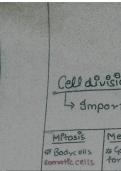 Cell divisi
↳ Impor
Mitosis
Me
# Body cells
# G
somatic cells
for